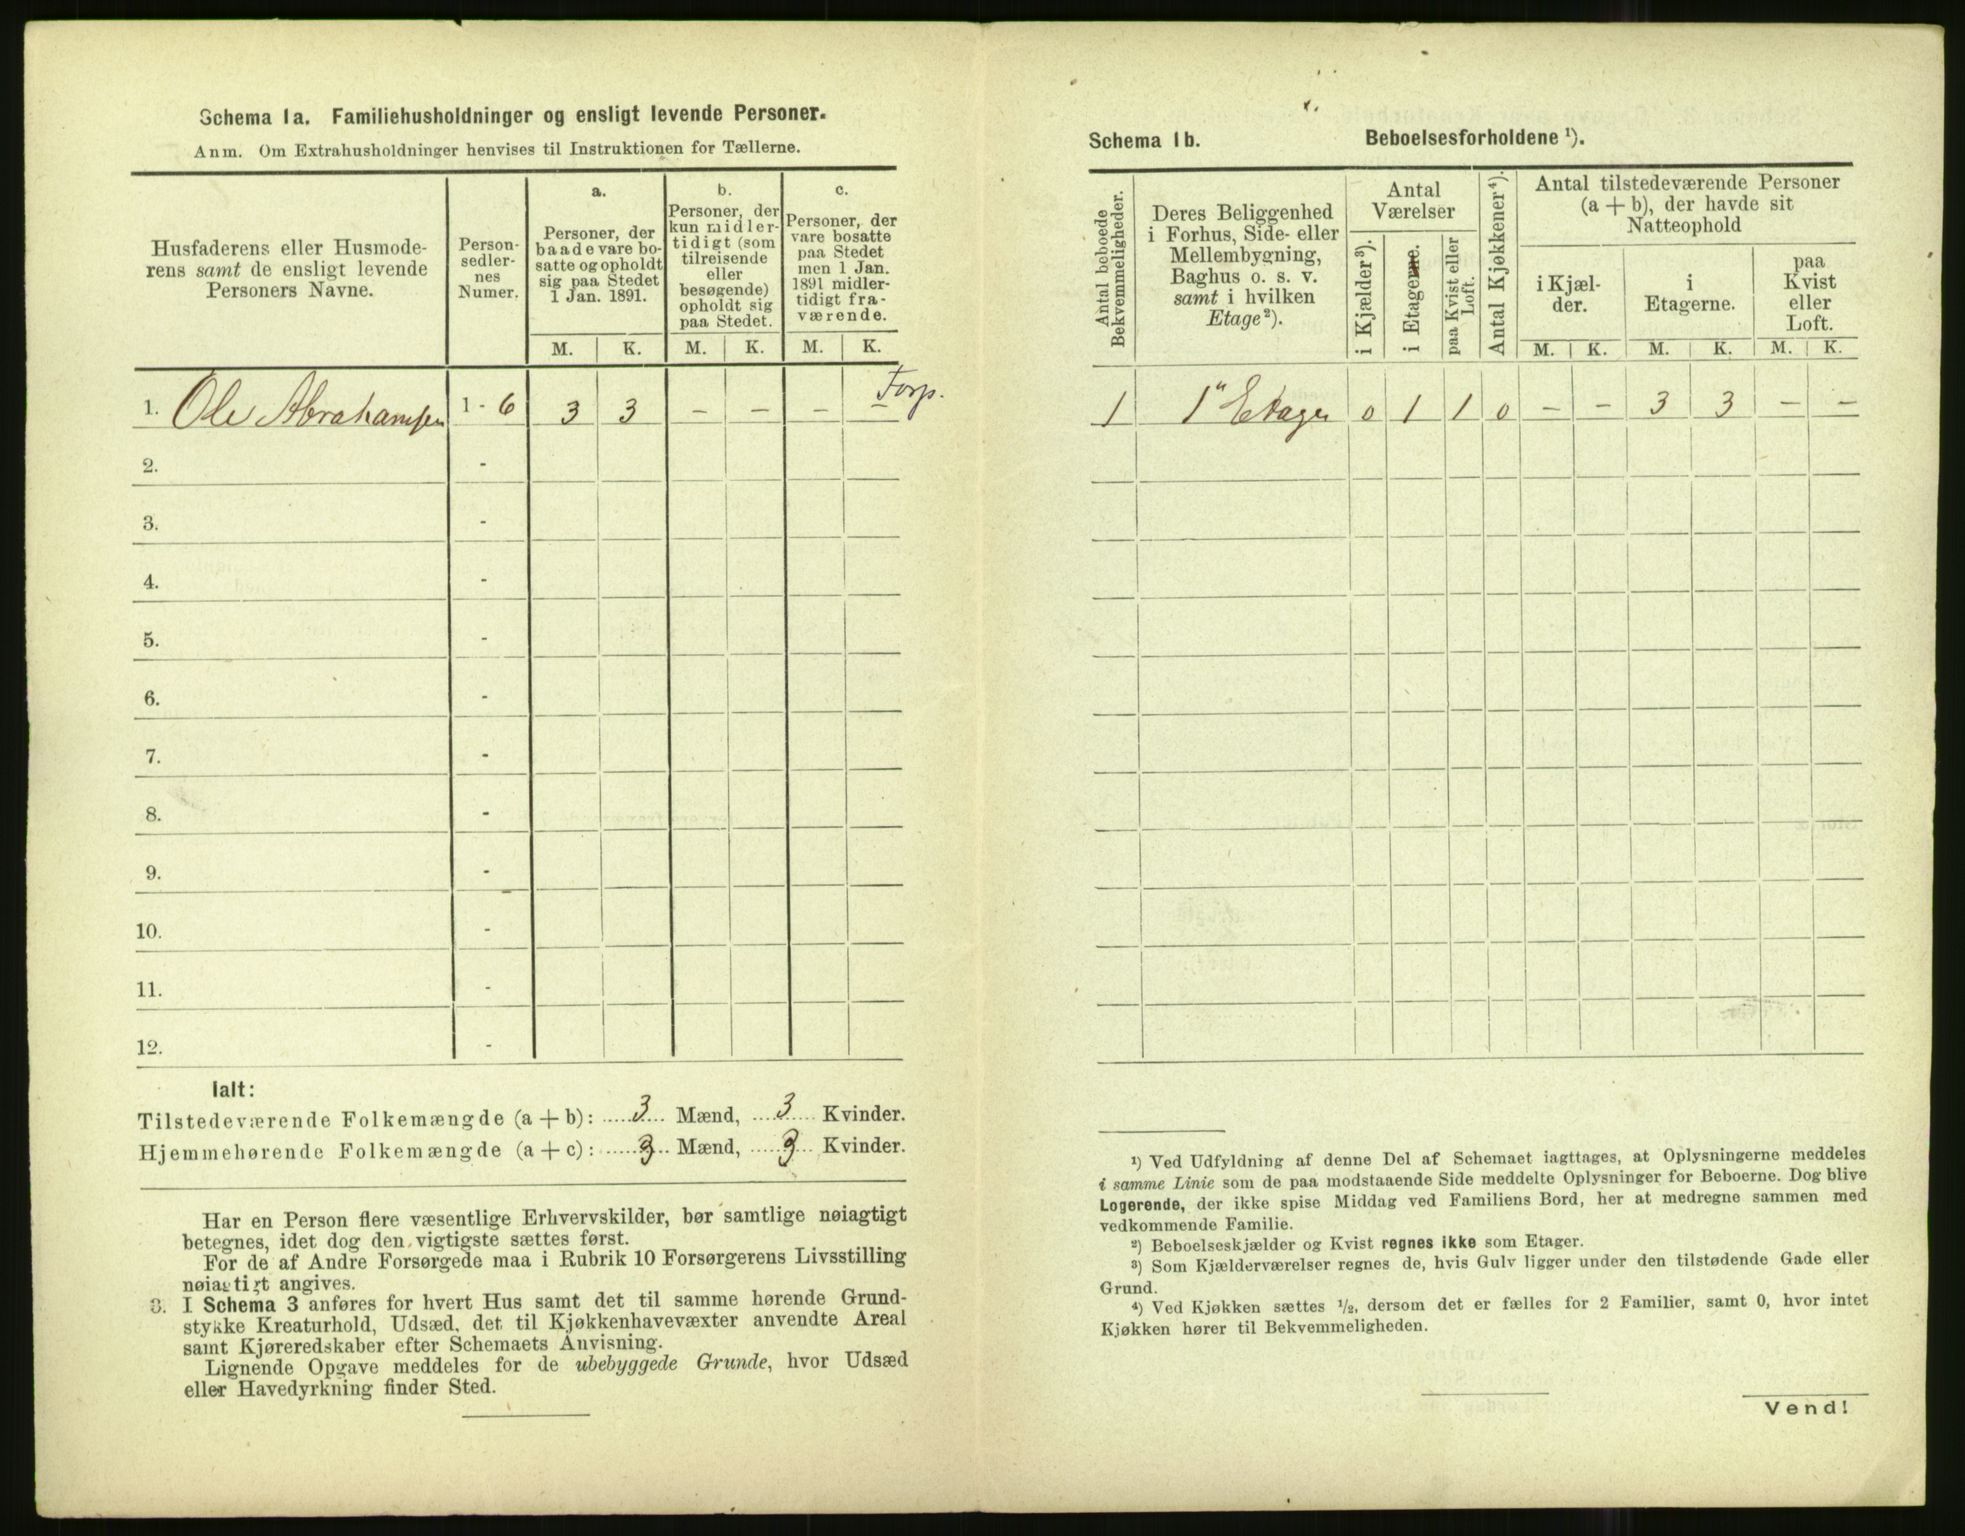 Schema 1a. Familiehusholdninger og ensligt levende Personer.
Anm. Om Extrahusholdninger henvises til Instruktionen for Tællerne.
Husfaderens eller Husmode-
rens samt de ensligt levende
Personers Navne.
Person-
sedler-
nes
Numer.
a.
Personer, der
baade vare bo-
satte og opholdt
sig paa Stedet
1 Jan. 1891.
b.
Personer, der
kun midler-
tidigt (som
tilreisende
eller
besøgende)
opholdt sig
paa Stedet.
c.
Personer, der
vare bosatte
paa Stedet
men 1 Jan.
1891 midler-
tidigt fra-
værende.
M. K. M. K. M. K.
1. Ole Abrahamsen 1 - 6 3 3 – – – – Forp.
2. -
3. -
4. -
5. -
6. -
7. -
8. -
9. -
10. -
11. -
12. -
Ialt:
Tilstedeværende Folkemængde (a + b): 3 Mænd, 3 Kvinder.
Hjemmehørende Folkemængde (a + c): 3 Mænd, 3 Kvinder.
Har en Person flere væsentlige Erhvervskilder, bør samtlige nøiagtigt
betegnes, idet dog den vigtigste sættes først.
For de af Andre Forsørgede maa i Rubrik 10 Forsørgerens Livsstilling
nøiagtigt angives.
3. I Schema 3 anføres for hvert Hus samt det til samme hørende Grund-
stykke Kreaturhold, Udsæd, det til Kjøkkenhavevæxter anvendte Areal
samt Kjøreredskaber efter Schemaets Anvisning.
Lignende Opgave meddeles for de ubebyggede Grunde, hvor Udsæd
eller Havedyrkning finder Sted.
Schema 1b. Beboelsesforholdene ¹).
Antal beboede
Bekvemmeligheder.
Deres Beliggenhed
i Forhus, Side- eller
Mellembygning,
Baghus o. s. v.
samt i hvilken
Etage²).
Antal
Værelser
i Kjælder³).
i Etagerne.
paa Kvist eller
Loft.
Antal Kjøkkener⁴).
Antal tilstedeværende Personer
(a + b), der havde sit
Natteophold
i Kjæl-
der.
i
Etagerne.
paa
Kvist
eller
Loft.
M. K. M. K. M. K.
1 1" Etager 0 1 1 0 – – 3 3 – –
¹) Ved Udfyldning af denne Del af Schemaet iagttages, at Oplysningerne meddeles
i samme Linie som de paa modstaaende Side meddelte Oplysninger for Beboerne. Dog blive
Logerende, der ikke spise Middag ved Familiens Bord, her at medregne sammen med
vedkommende Familie.
²) Beboelseskjælder og Kvist regnes ikke som Etager.
³) Som Kjælderværelser regnes de, hvis Gulv ligger under den tilstødende Gade eller
Grund.
⁴) Ved Kjøkken sættes ½, dersom det er fælles for 2 Familier, samt 0, hvor intet
Kjøkken hører til Bekvemmeligheden.
Vend!